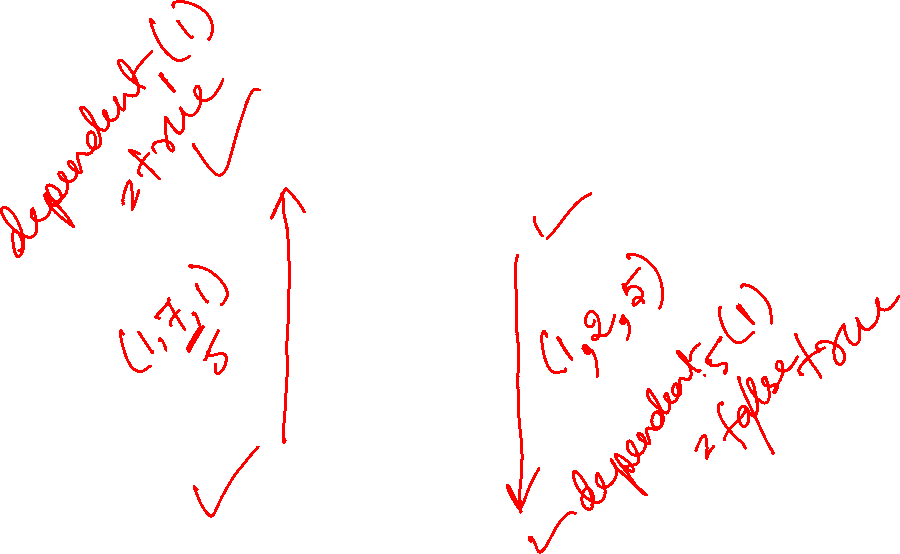 dependent, (1)
2 true
(1,7,1)
5
(1,2,5)
dependent.5(1)
2 false true